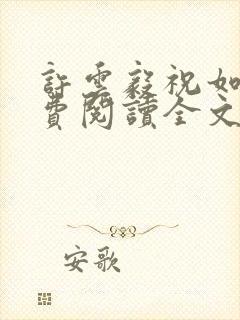 許雲毅祝如
費閱讀全文
安歌